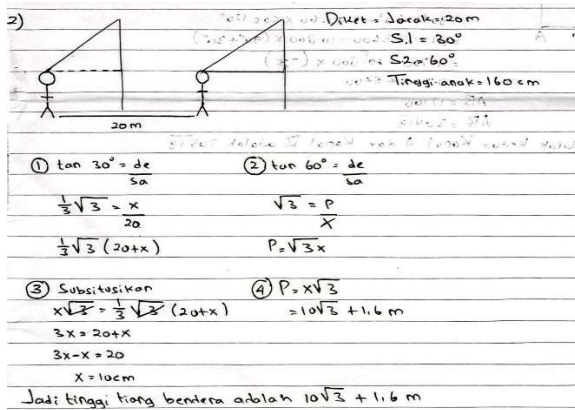 2)
Diket = Jarak = 20m
S.1 = 30°
S.2 = 60°
Tinggi anak = 160 cm
20m
① tan 30° = de/sa
⅓√3 = x/20
⅓√3 (20+x)
② tan 60° = de/sa
√3 = P/x
P = √3x
③ Subsitusikan
x√3 = ⅓√3 (20+x)
3x = 20+x
3x-x = 20
x = 10cm
④ P = x√3
= 10√3 + 1,6 m
Jadi tinggi tiang bendera adalah 10√3 + 1,6 m